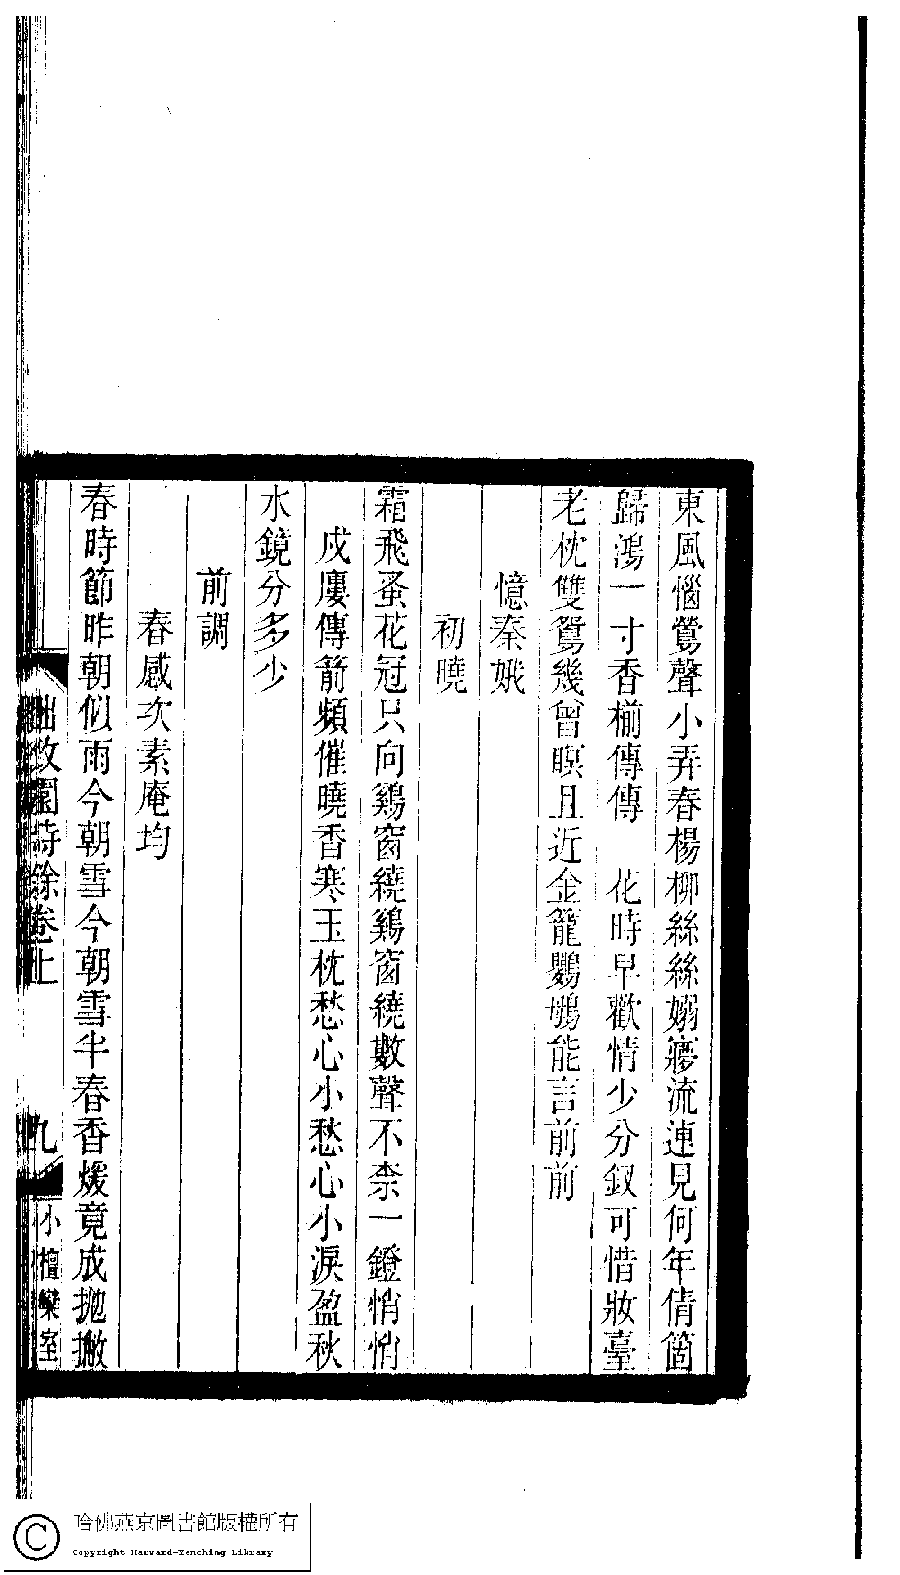 東風惱鶯聲小弄春楊柳絲絲嫋寢流連見何年倩箇
歸鴻一寸香椾傳傳　花時早歡情少分釵可惜妝臺
老枕雙鴛幾曾瞑且近金籠鸚鵡能言前前
憶秦娥
初曉
霜飛蚤花冠只向鷄窗繞鷄窗繞數聲不柰一鐙悄悄
戍廔傳箭頻催曉香寒玉枕愁心小愁心小淚盈秋
水鏡分多少
前調
春感次素庵均
春時節昨朝似雨今朝雪今朝雪半春香煖竟成拋撇
拙政園詩餘卷上
九
小檀欒室
哈佛燕京圖書館版權所有
Copyright Harvard-Yenching Library